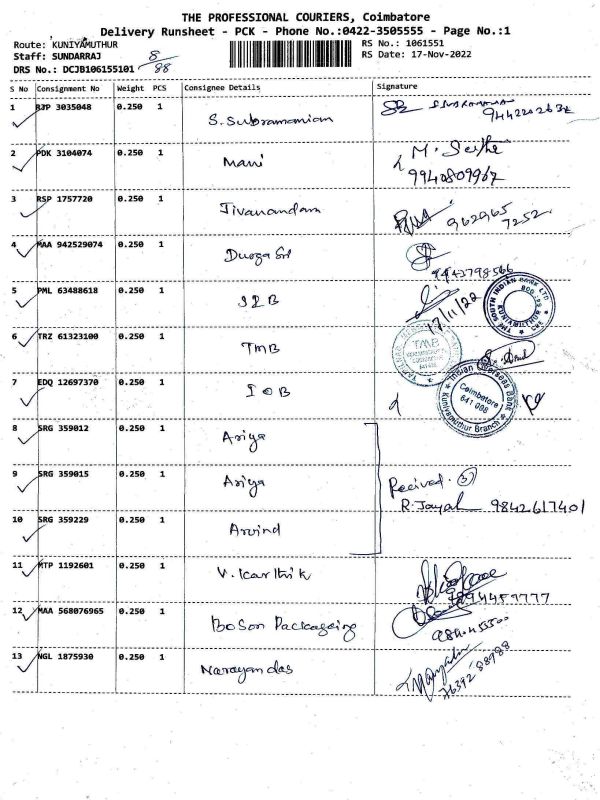 THE PROFESSIONAL COURIERS, Coimbatore
Delivery Runsheet - PCK - Phone No.:0422-3505555 - Page No.:1
Route: KUNIYAMUTHUR
RS No.: 1061551
Staff: SUNDARRAJ
8/88
RS Date: 17-Nov-2022
DRS No.: DCJB106155101
S No Consignment No Weight PCS Consignee Details Signature
1 BJP 3035048 0.250 1 S. Subramaniam
2 PDK 3104074 0.250 1 Mani M.
9940809967
3 RSP 1757720 0.250 1 Jivanandam 962965
7252
4 MAA 942529074 0.250 1 Durga Sri
9943798566
5 PML 63488618 0.250 1 SIB 17/11/22
THE SOUTH INDIAN BANK LTD
KUNIAMUTHUR
6 TRZ 61323100 0.250 1 TMB
TMB
7 EDQ 12697370 0.250 1 IOB
Indian Overseas Bank
Coimbatore
641 008
Kuniyamuthur Branch
8 SRG 359012 0.250 1 Ariya
9 SRG 359015 0.250 1 Ariya Recived. 3
R. Jayah 9842617401
10 SRG 359229 0.250 1 Arvind
11 MTP 1192601 0.250 1 V. Karthik
12 MAA 568076965 0.250 1 Boson Packageing
13 NGL 1875930 0.250 1 Narayandas